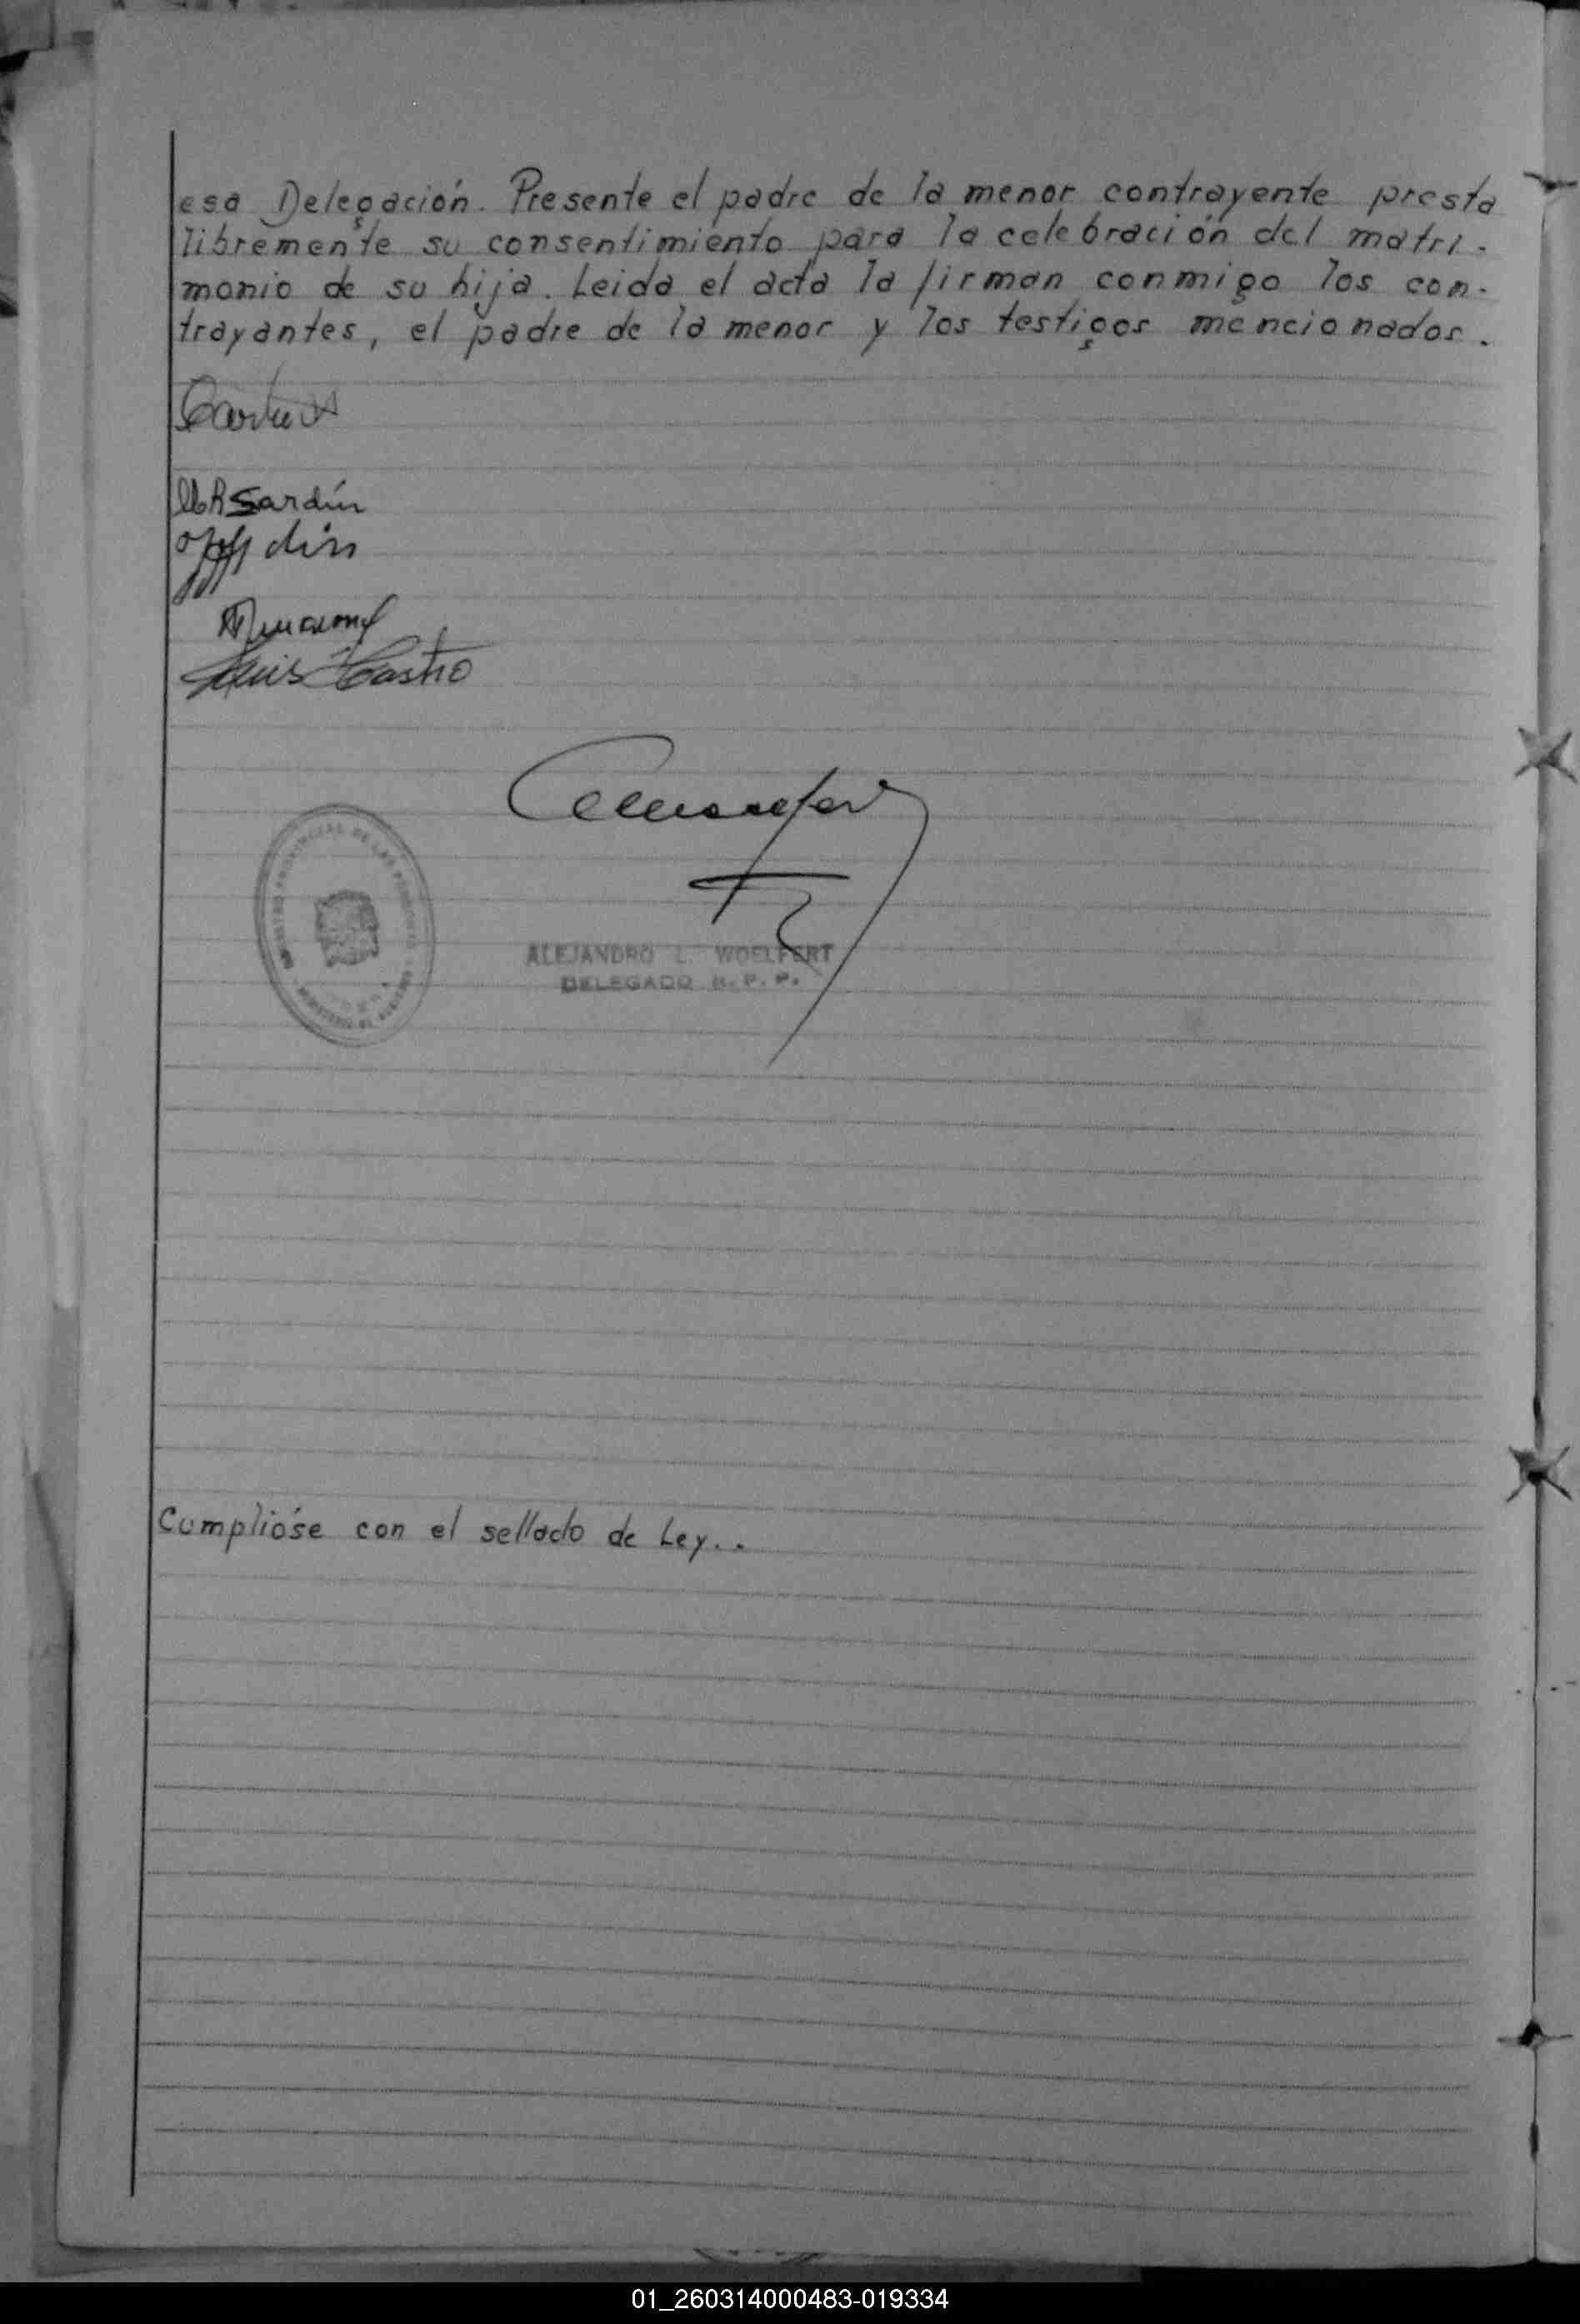 esa Delegación. Presente el padre de la menor contrayente presta
libremente su consentimiento para la celebración del matri-
monio de su hija. Leida el acta la firman conmigo los con-
trayantes, el padre de la menor y los testigos mencionados.
Sardín
Luis Castro
REGISTRO PROVINCIAL DE LAS PERSONAS
ALEJANDRO L. WOELFERT
DELEGADO R. P. P.
Cumplióse con el sellado de Ley..
01_260314000483-019334